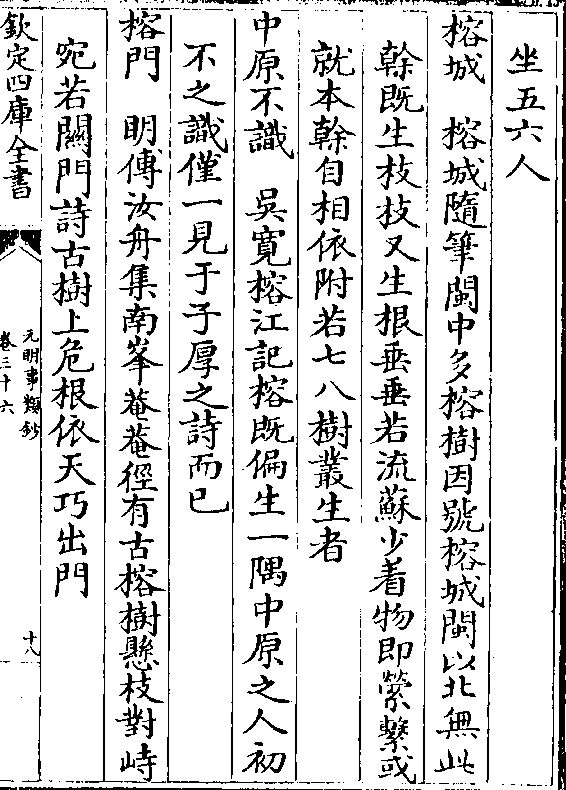 坐五六人
榕城　榕城隨筆閩中多榕樹因號榕城閩以北無此
榦既生枝枝又生根垂垂若流蘇少着物即縈繫或
就本榦自相依附若七八樹叢生者
中原不識　吳寛榕江記榕既偏生一隅中原之人初
不之識僅一見于子厚之詩而已
榕門　明傅汝舟集南峯菴菴徑有古榕樹懸枝對峙
宛若闗門詩古樹上危根依天巧出門
欽定四庫全書
元明事類鈔
卷三十六
十八